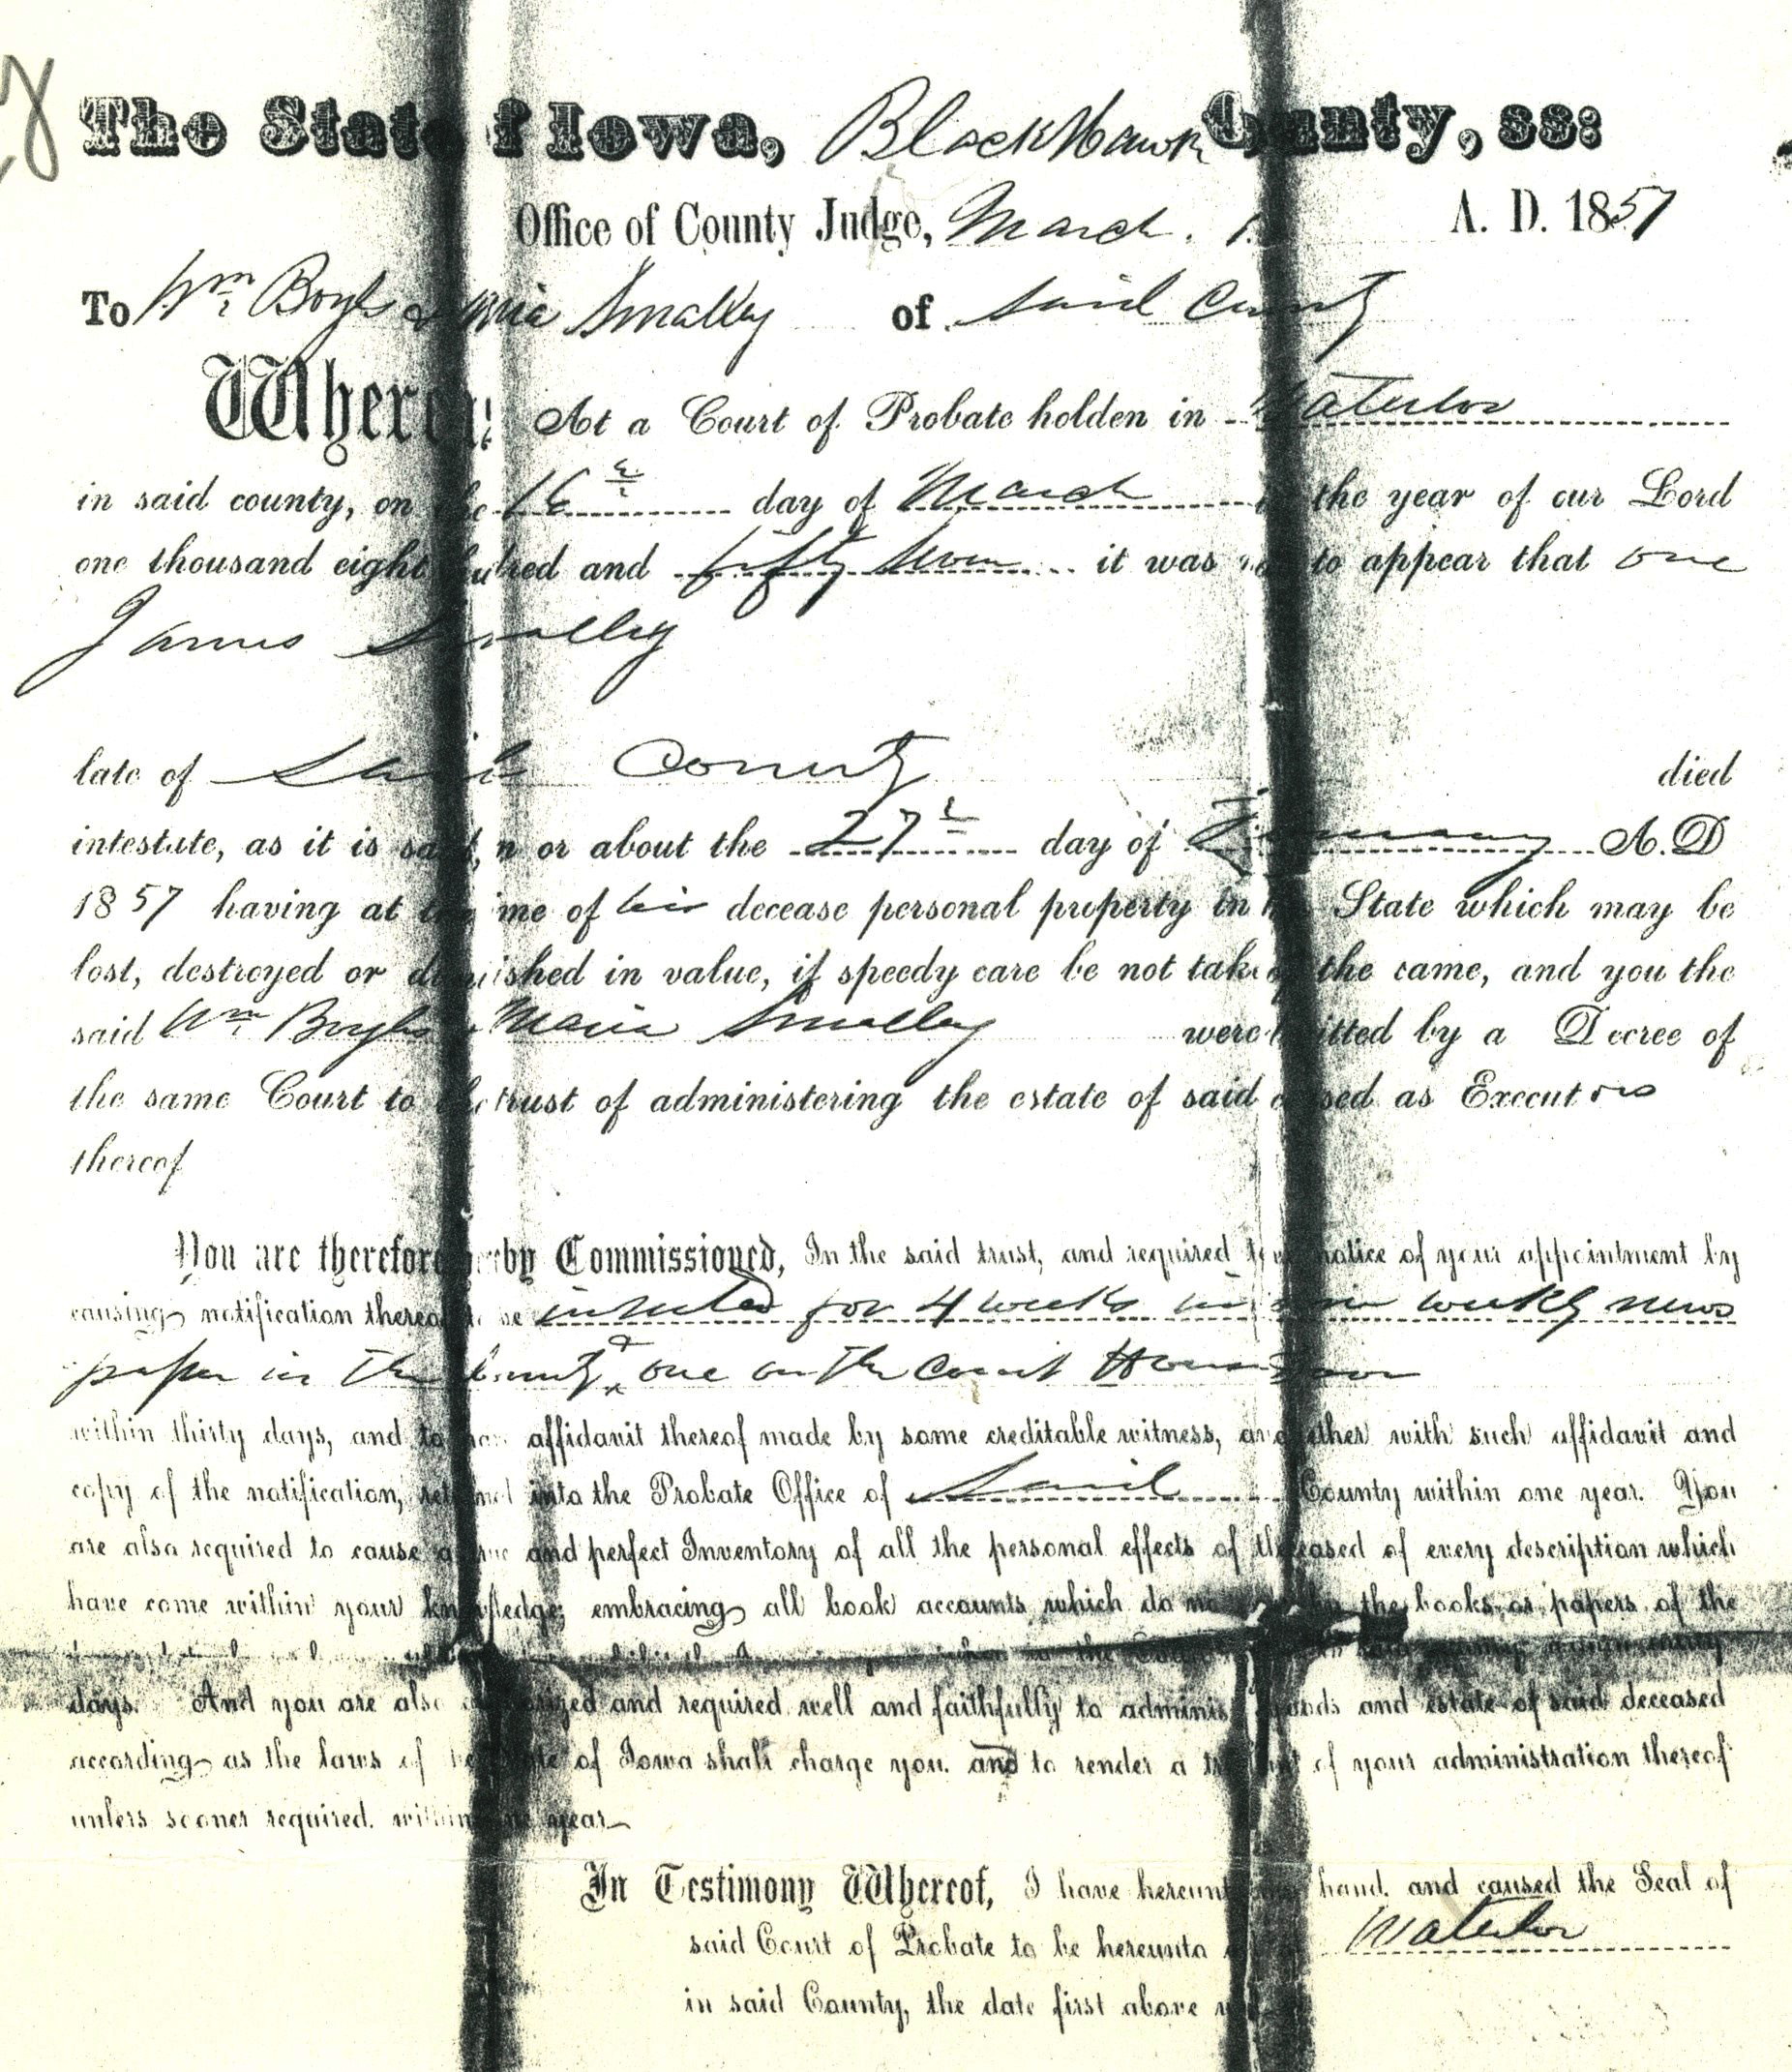 The State of Iowa, Black Hawk County, ss:
Office of County Judge, March. A. D. 1857
To Wm Boyls & Maria Smalley of said County
Whereas, At a Court of Probate holden in Waterloo
in said county, on the 16th day of March in the year of our Lord
one thousand eight hundred and fifty seven it was to appear that one
James Smalley
late of said County died
intestate, as it is said, on or about the 27th day of A.D
1857 having at the time of his decease personal property in this State which may be
lost, destroyed or diminished in value, if speedy care be not taken of the same, and you the
said Wm Boyls & Maria Smalley were committed by a Decree of
the same Court to the trust of administering the estate of said deceased as Executors
thereof
You are therefore hereby Commissioned, In the said trust, and required to give notice of your appointment by
causing notification thereof to be inserted for 4 weeks in weekly news
paper in the County & one on the Court House Door
within thirty days, and to have affidavit thereof made by some creditable witness, and together with such affidavit and
copy of the notification, return into the Probate Office of said County within one year. You
are also required to cause a true and perfect Inventory of all the personal effects of the deceased of every description which
have come within your knowledge; embracing all book accounts which do not the books or papers of the
days. And you are also authorized and required well and faithfully to administer goods and estate of said deceased
according as the laws of the State of Iowa shall charge you. and to render a true of your administration thereof
unless sooner required. within one year
In Testimony Whereof, I have hereunto hand. and caused the Seal of
said Court of Probate to be hereunto Waterloo
in said County, the date first above